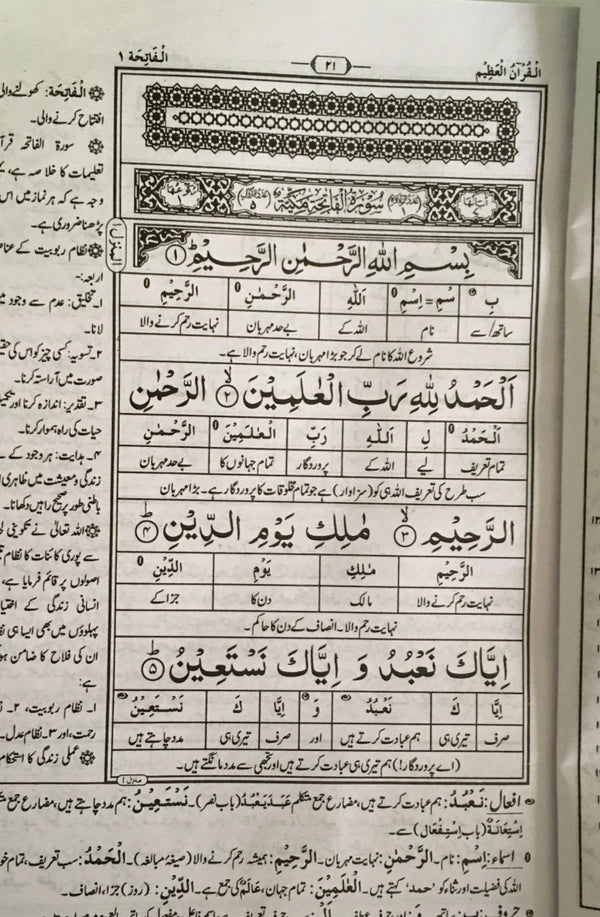 اَلْقُرْاٰنُ الْعَظِيْم
٢١
اَلْفَاتِحَة ١
سُوْرَةُ الْفَاتِحَةِ مَكِّيَّةٌ
بِسْمِ اللّٰهِ الرَّحْمٰنِ الرَّحِيْمِ ﴿١﴾
بِ سْمِ = اِسْمِ اَللّٰهِ الرَّحْمٰنِ الرَّحِيْمِ
ساتھ/سے نام اللہ کے بےحد مہربان نہایت رحم کرنے والا
شروع اللہ کا نام لے کر جو بڑا مہربان، نہایت رحم والا ہے۔
اَلْحَمْدُ لِلّٰهِ رَبِّ الْعٰلَمِيْنَ ﴿٢﴾ الرَّحْمٰنِ
اَلْحَمْدُ لِ اَللّٰهِ رَبِّ الْعٰلَمِيْنَ الرَّحْمٰنِ
تمام تعریف لیے اللہ کے پروردگار تمام جہانوں کا بےحد مہربان
سب طرح کی تعریف اللہ ہی کو (سزاوار) ہے جو تمام مخلوقات کا پروردگار ہے۔ بڑا مہربان
الرَّحِيْمِ ﴿٣﴾ مٰلِكِ يَوْمِ الدِّيْنِ ﴿٤﴾
الرَّحِيْمِ مٰلِكِ يَوْمِ الدِّيْنِ
نہایت رحم کرنے والا مالک دن کا جزا کے
نہایت رحم والا۔ انصاف کے دن کا حاکم۔
اِيَّاكَ نَعْبُدُ وَ اِيَّاكَ نَسْتَعِيْنُ ﴿٥﴾
اِيَّا كَ نَعْبُدُ وَ اِيَّا كَ نَسْتَعِيْنُ
صرف تیری ہی ہم عبادت کرتے ہیں اور صرف تیری ہی مدد چاہتے ہیں
(اے پروردگار!) ہم تیری ہی عبادت کرتے ہیں اور تجھی سے مدد مانگتے ہیں۔
منزل ١
اَلْفَاتِحَة: کھولنے والی
افتتاح کرنے والی۔
سورۃ الفاتحہ
تعلیمات کا خلاصہ ہے،
وجہ ہے کہ ہر نماز میں اس
پڑھنا ضروری ہے۔
نظام ربوبیت کے
اربعہ:-
١۔ تخلیق: عدم سے وجود میں
لانا۔
٢۔ تسویہ: کسی چیز کو اس کی
صورت میں آراستہ کرنا۔
٣۔ تقدیر: اندازہ کرنا اور
حیات کی راہ ہموار کرنا۔
٤۔ ہدایت: ہر وجود کے
زندگی و معیشت میں ظاہری
باطنی طور پر صحیح راہیں دکھانا۔
اللہ تعالٰی نے تکوینی
سے پوری کائنات کا نظام
اصولوں پر قائم فرمایا ہے،
انسانی زندگی کے
پہلوؤں میں بھی ایسا ہی
ان کی فلاح کا ضامن
ہے:
١۔ نظام ربوبیت، ٢۔
رحمت، اور ٣۔ نظام عدل۔
عملی زندگی کا استحکام
افعال: نَعْبُدُ: ہم عبادت کرتے ہیں، مضارع جمع متکلم عَبَدَ يَعْبُدُ (باب نصر)۔ نَسْتَعِيْنُ: ہم مدد چاہتے ہیں، مضارع جمع
اِسْتِعَانَةٌ (باب اِسْتِفْعَال) سے۔
اسماء: اِسْم: نام۔ الرَّحْمٰن: نہایت مہربان۔ الرَّحِيْم: ہمیشہ رحم کرنے والا (صیغہ مبالغہ)۔ الْحَمْدُ: سب تعریف، تمام
اللہ کی فضیلت اور ثنا کو 'حمد' کہتے ہیں۔ الْعٰلَمِيْنَ: تمام جہان، عَالَمٌ کی جمع ہے۔ الدِّيْن: (روز) جزا، انصاف۔